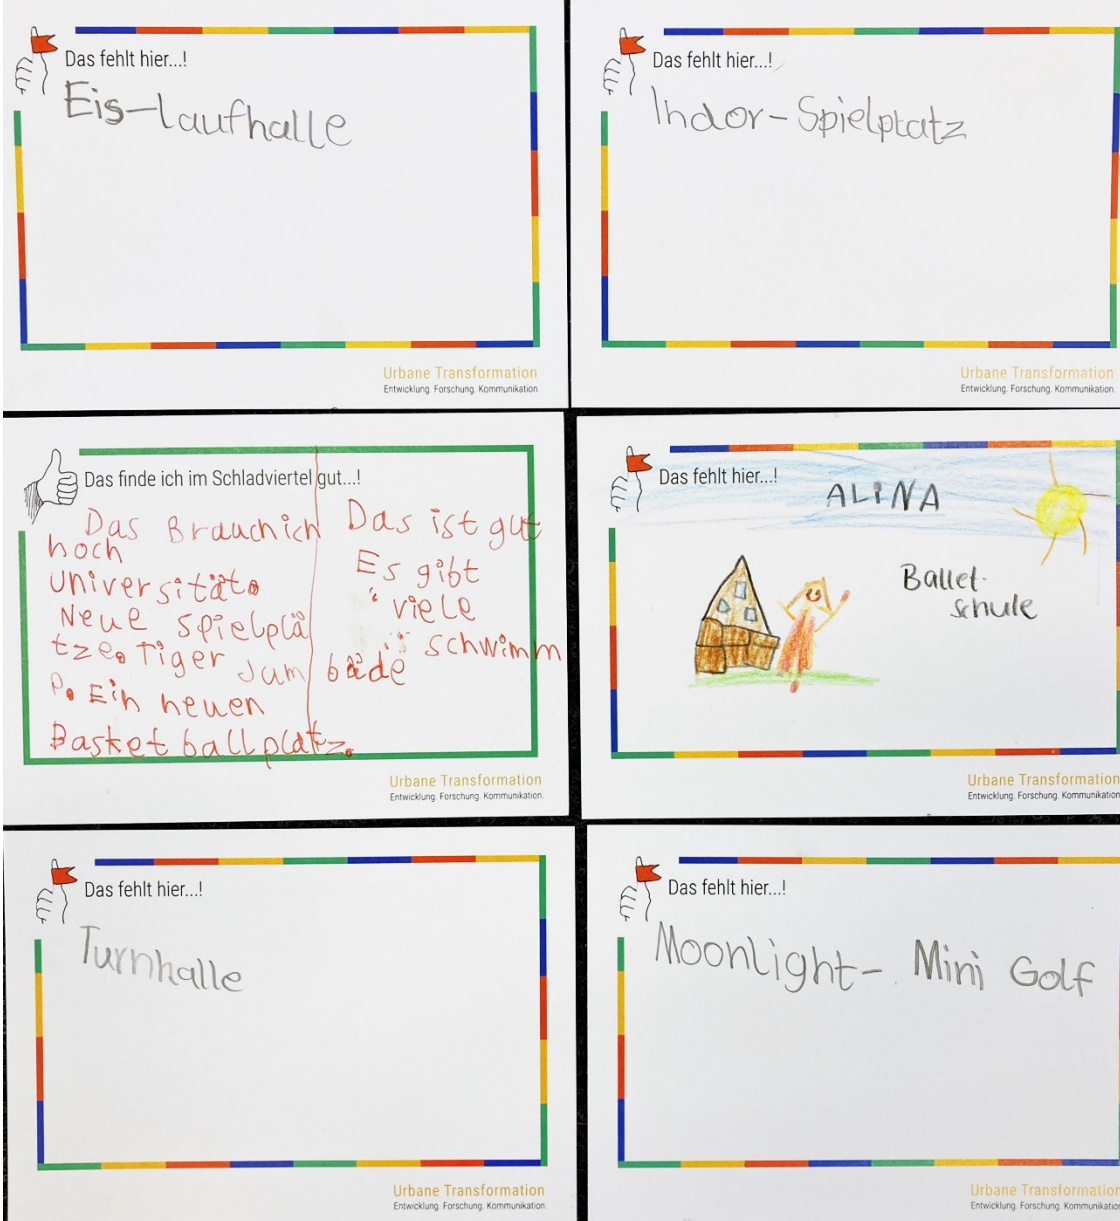 Das fehlt hier...!
Eis-Laufhalle
Urbane Transformation
Entwicklung. Forschung. Kommunikation.
Das fehlt hier...!
Indor-Spielplatz
Urbane Transformation
Entwicklung. Forschung. Kommunikation.
Das finde ich im Schladviertel gut...!
Das Brauch ich
hoch
universität.
Neue spielplä
tze. Tiger Jum
p. Ein neuen
Basket ballplatz.
Das ist gut
Es gibt
viele
schwimm
bäde
Urbane Transformation
Entwicklung. Forschung. Kommunikation.
Das fehlt hier...!
ALiNA
Ballet-
schule
Urbane Transformation
Entwicklung. Forschung. Kommunikation.
Das fehlt hier...!
Turnhalle
Urbane Transformation
Entwicklung. Forschung. Kommunikation.
Das fehlt hier...!
Moonlight- Mini Golf
Urbane Transformation
Entwicklung. Forschung. Kommunikation.